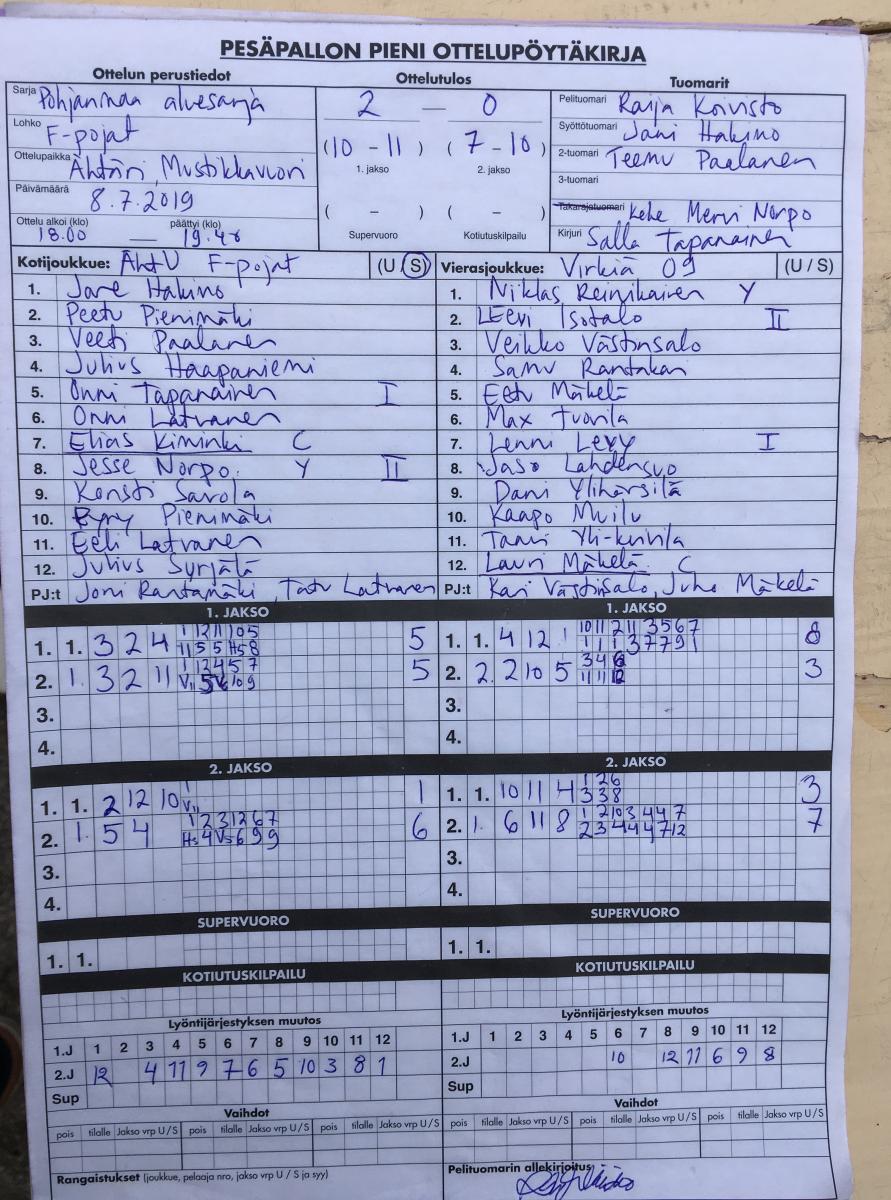 PESÄPALLON PIENI OTTELUPÖYTÄKIRJA
Ottelun perustiedot
Sarja Pohjanmaa aluesarja
Lohko F-pojat
Ottelupaikka Ähtäri, Mustikkavuori
Päivämäärä 8.7.2019
Ottelu alkoi (klo) päättyi (klo)
18.00 — 19.48
Ottelutulos
2 — 0
(10 - 11) (7 - 10)
1. jakso 2. jakso
( - ) ( - )
Supervuoro Kotiutuskilpailu
Tuomarit
Pelituomari Raija Koivisto
Syöttötuomari Jani Hakino
2-tuomari Teemu Paalanen
3-tuomari
Takarajatuomari Kehe Mervi Norpo
Kirjuri Salla Tapanainen
Kotijoukkue: ÄhtU F-pojat (U / S)
1. Jare Hakino
2. Peetu Pienimäki
3. Veeti Paalanen
4. Julius Haapaniemi
5. Onni Tapanainen I
6. Onni Latvanen
7. Elias Kiminki C
8. Jesse Norpo. Y II
9. Konsti Savola
10. Pienimäki
11. Eeli Latvanen
12. Julius Syrjälä
PJ:t Joni Rantamäki, Tatu Latvanen
Vierasjoukkue: Virkiä 09 (U / S)
1. Niklas Reinikainen Y
2. Leevi Isotalo II
3. Veikko Västinsalo
4. Samu Rantakari
5. Eetu Mäkelä
6. Max Tuovila
7. Lenni Levy I
8. Jaso Lahdensuo
9. Dani Ylihärsilä
10. Kaapo Muilu
11. Taavi Yli-kuivila
12. Lauri Mäkelä. C
PJ:t Kari Västinsalo, Juha Mäkelä
1. JAKSO
1. 1. 3 2 4 5
2. 1. 3 2 11 5
3.
4.
1. JAKSO
1. 1. 4 12 1 8
2. 2. 2 10 5 3
3.
4.
2. JAKSO
1. 1. 2 12 10 1
2. 1. 5 4 6
3.
4.
2. JAKSO
1. 1. 10 11 4 3
2. 1. 6 11 8 7
3.
4.
SUPERVUORO
1. 1.
SUPERVUORO
1. 1.
KOTIUTUSKILPAILU
KOTIUTUSKILPAILU
Lyöntijärjestyksen muutos
1.J 1 2 3 4 5 6 7 8 9 10 11 12
2.J 12 4 11 9 7 6 5 10 3 8 1
Sup
Lyöntijärjestyksen muutos
1.J 1 2 3 4 5 6 7 8 9 10 11 12
2.J 10 12 11 6 9 8
Sup
Vaihdot
pois tilalle Jakso vrp U/S pois tilalle Jakso vrp U/S pois tilalle Jakso vrp U/S
Vaihdot
pois tilalle Jakso vrp U/S pois tilalle Jakso vrp U/S pois tilalle Jakso vrp U/S
Rangaistukset (joukkue, pelaaja nro, jakso vrp U / S ja syy)
Pelituomarin allekirjoitus